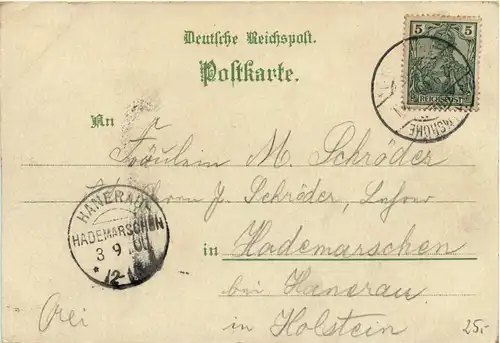 Deutsche Reichspost.
Postkarte.
5 5
REICHSPOST
An
Fräulein M. Schröder
Herrn J. Schröder,
in Hademarschen
bei Hanerau
in Holstein
HANERAU
HADEMARSCHEN
3 9 00
* 12-1
frei
25.-